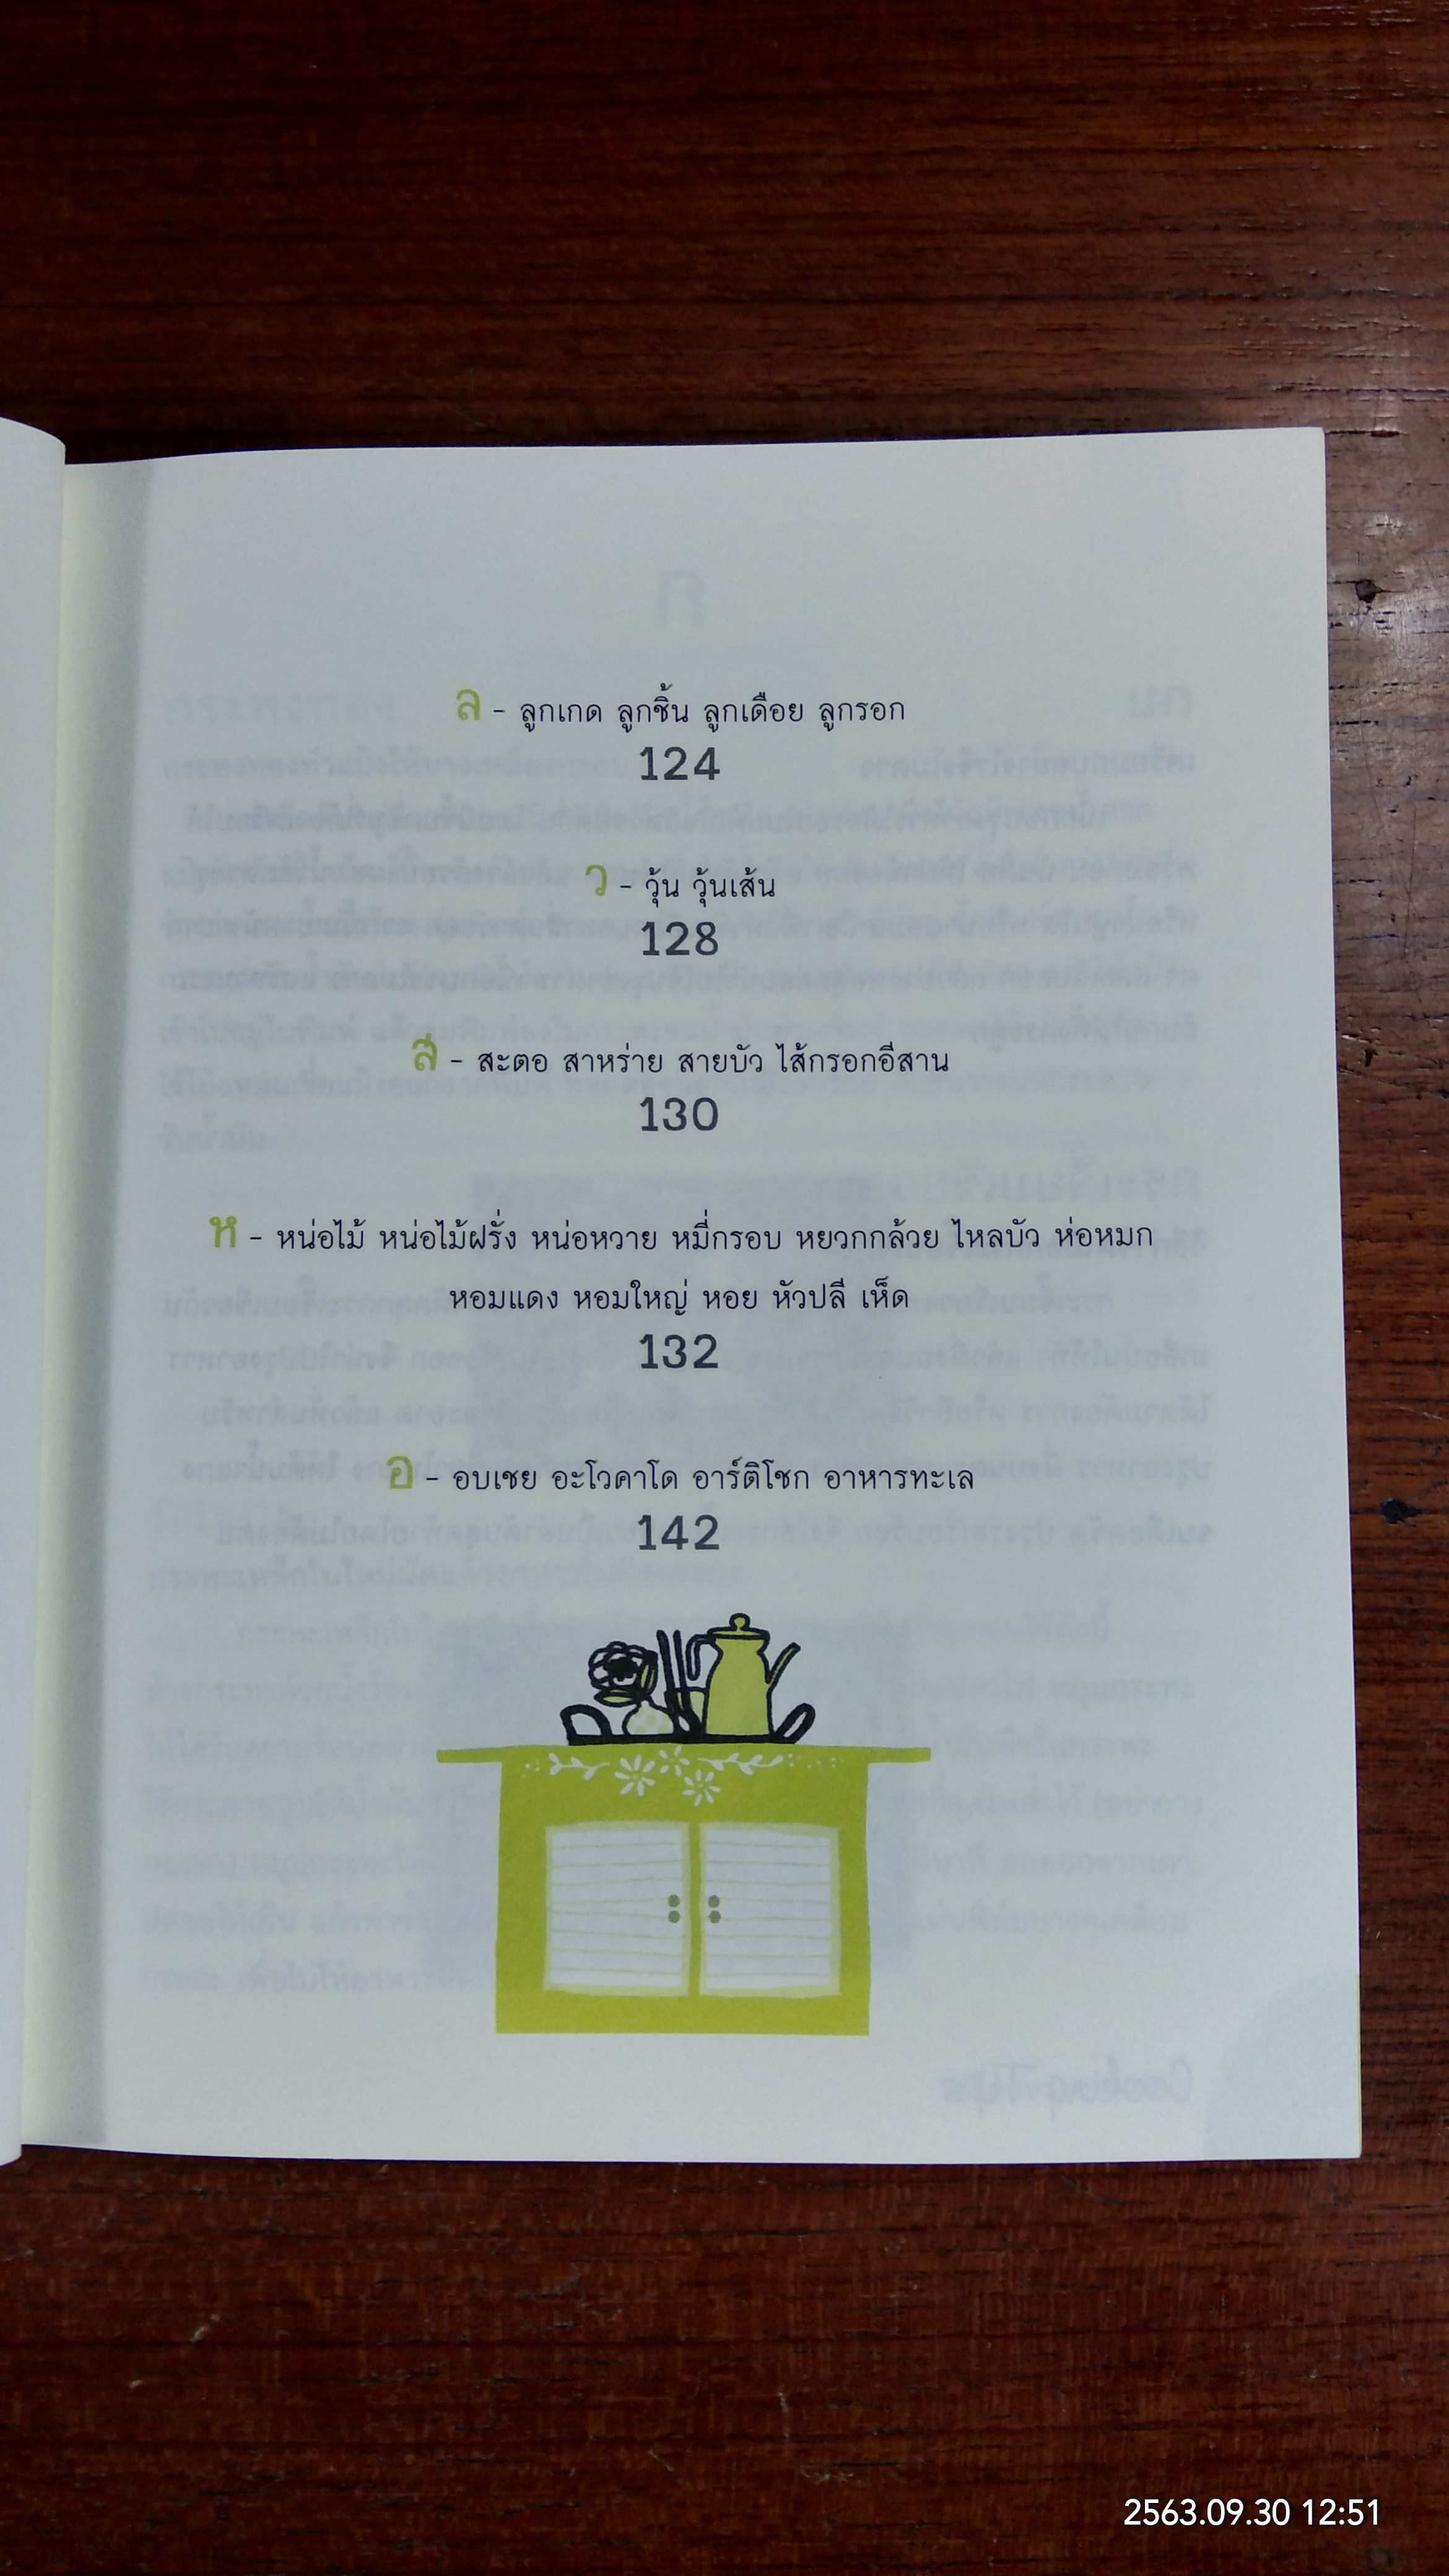 ล - ลูกเกด ลูกชิ้น ลูกเดือย ลูกรอก
124
ว - วุ้น วุ้นเส้น
128
ส - สะตอ สาหร่าย สายบัว ไส้กรอกอีสาน
130
ห - หน่อไม้ หน่อไม้ฝรั่ง หน่อหวาย หมี่กรอบ หยวกกล้วย ไหลบัว ห่อหมก
หอมแดง หอมใหญ่ หอย หัวปลี เห็ด
132
อ - อบเชย อะโวคาโด อาร์ติโชก อาหารทะเล
142
2563.09.30 12:51